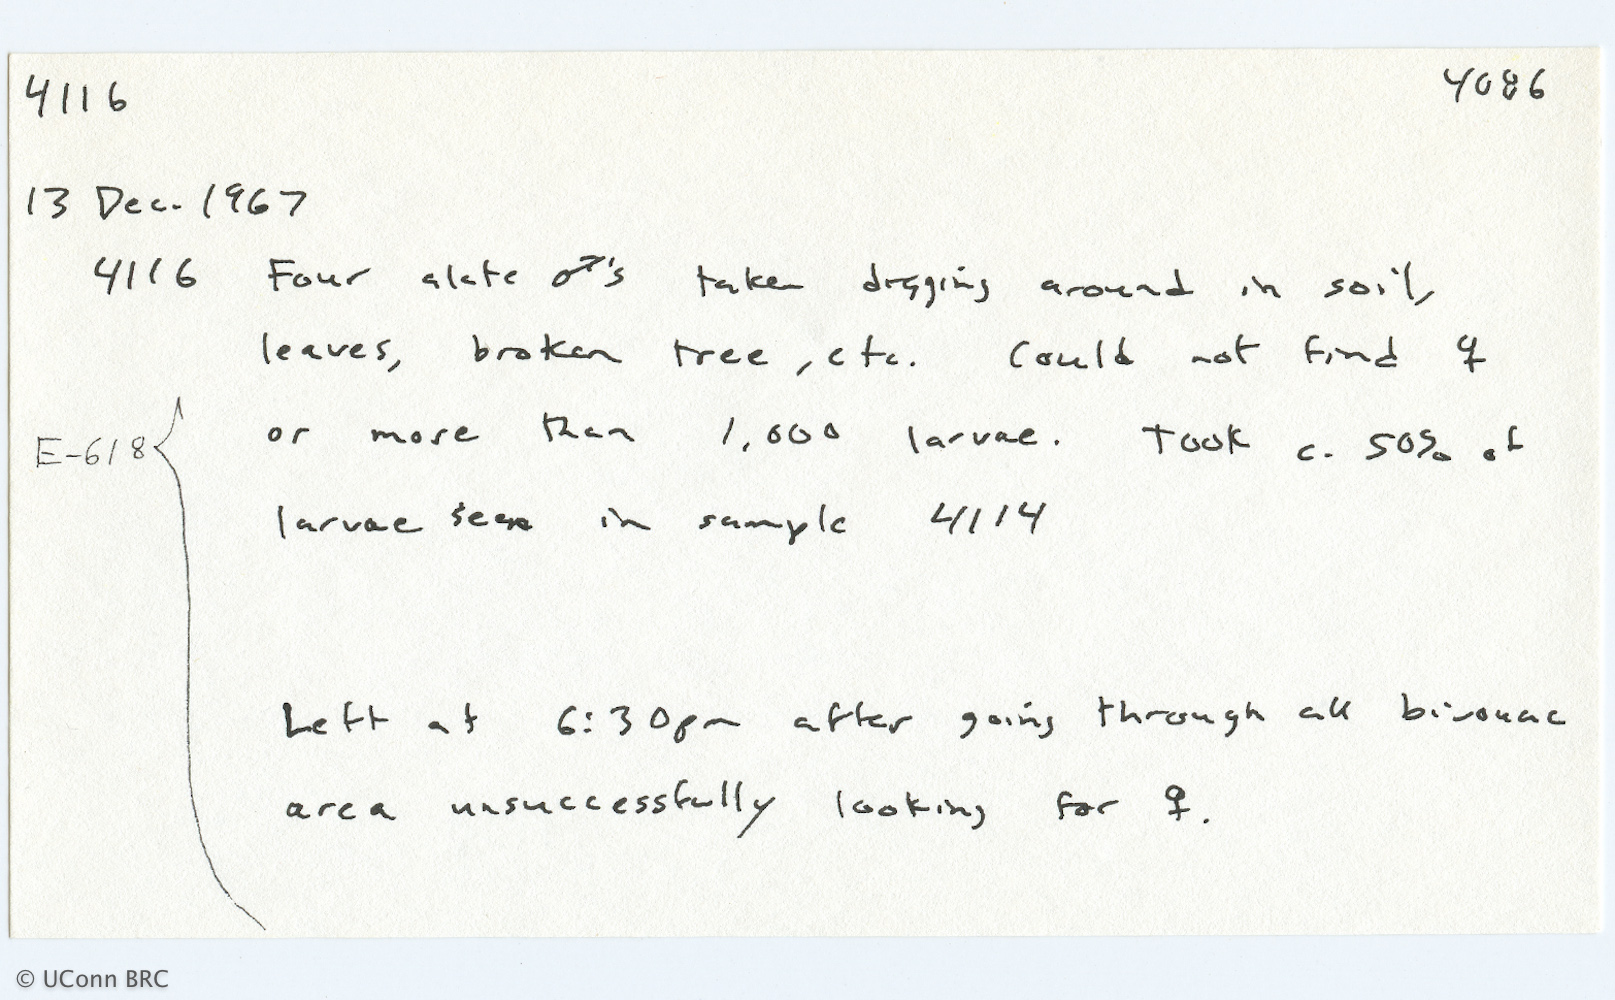 4116 4086
13 Dec. 1967
4116 Four alate ♂'s taken digging around in soil,
leaves, broken tree, etc. Could not find ♀
or more than 1,000 larvae. Took c. 50% of
E-618
larvae seen in sample 4114
Left at 6:30pm after going through all bivouac
area unsuccessfully looking for ♀.
© UConn BRC